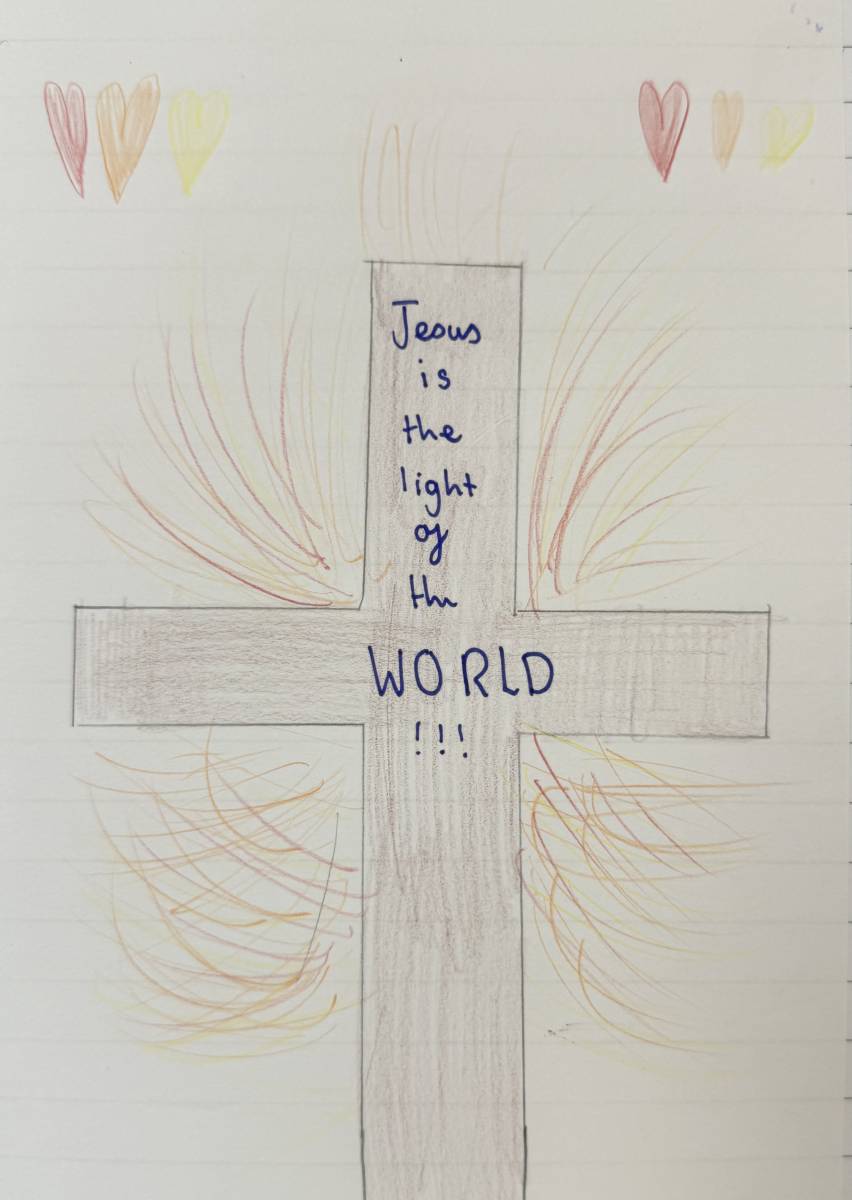 Jesus
is
the
light
of
the
WORLD
!!!